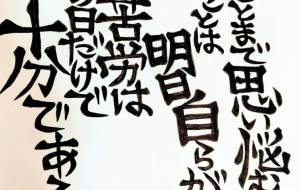 とまで思い悩む
ことは
明日自らが
苦労は
の日だけで
十分である